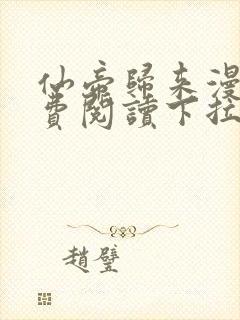 仙帝歸来漫
費閱讀下拉
趙壁